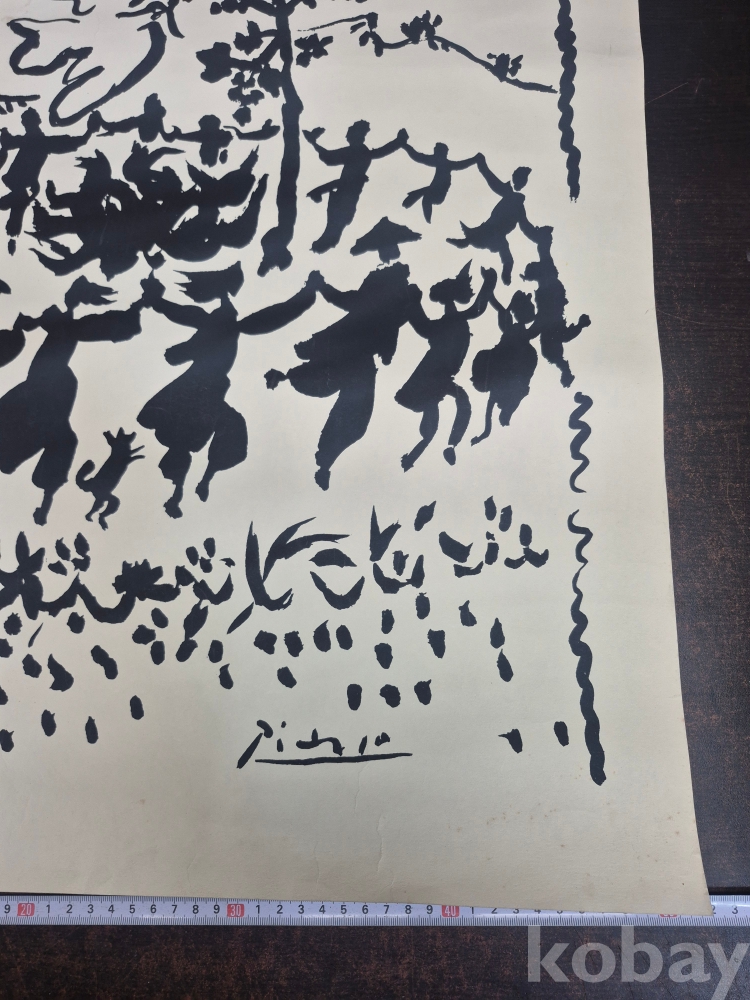 Picasso
9 20 1 2 3 4 5 6 7 8 9 30 1 2 3 4 5 6 7 8 9 40 1 2 3 4 5 6 2 3
kobay